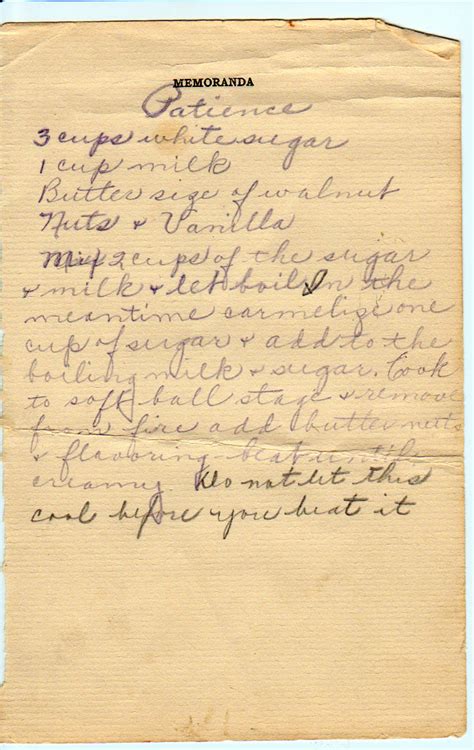 MEMORANDA
Patience
3 cups white sugar
1 cup milk
Butter size of walnut
Nuts & Vanilla
Mix 2 cups of the sugar
& milk & let boil In the
meantime carmelize one
cup of sugar & add to the
boiling milk & sugar. Cook
to soft ball stage & remove
from fire add butter nuts
& flavoring - beat until
creamy. Do not let this
cool before you beat it